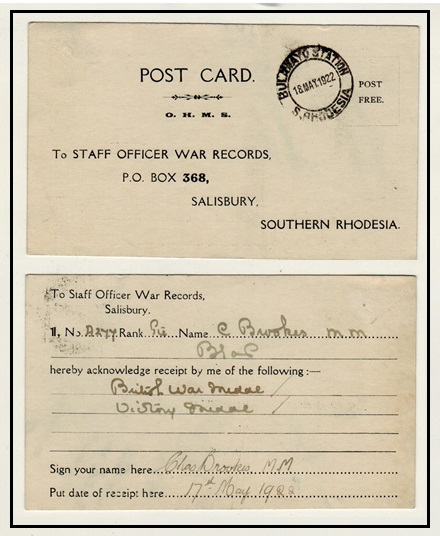 POST CARD.
O. H. M. S.
BULAWAYO STATION
18 MAY 1922
S. RHODESIA
POST
FREE.
To STAFF OFFICER WAR RECORDS,
P.O. BOX 368,
SALISBURY,
SOUTHERN RHODESIA.
To Staff Officer War Records,
Salisbury.
1, No. Rank Pte Name C Brookes MM
hereby acknowledge receipt by me of the following :—
British War Medal /
Victory Medal /
Sign your name here Chas Brookes. MM
Put date of receipt here 17th May 1922